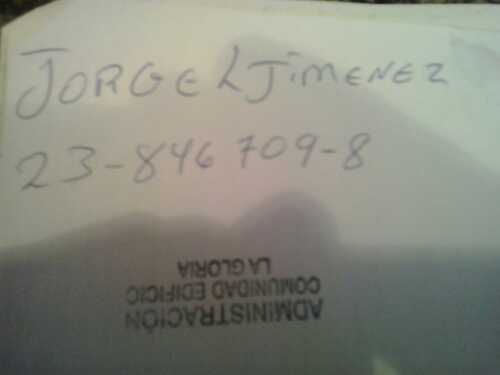 JORGE L JIMENEZ
23-846709-8
ADMINISTRACIÓN
COMUNIDAD EDIFICIO
LA GLORIA